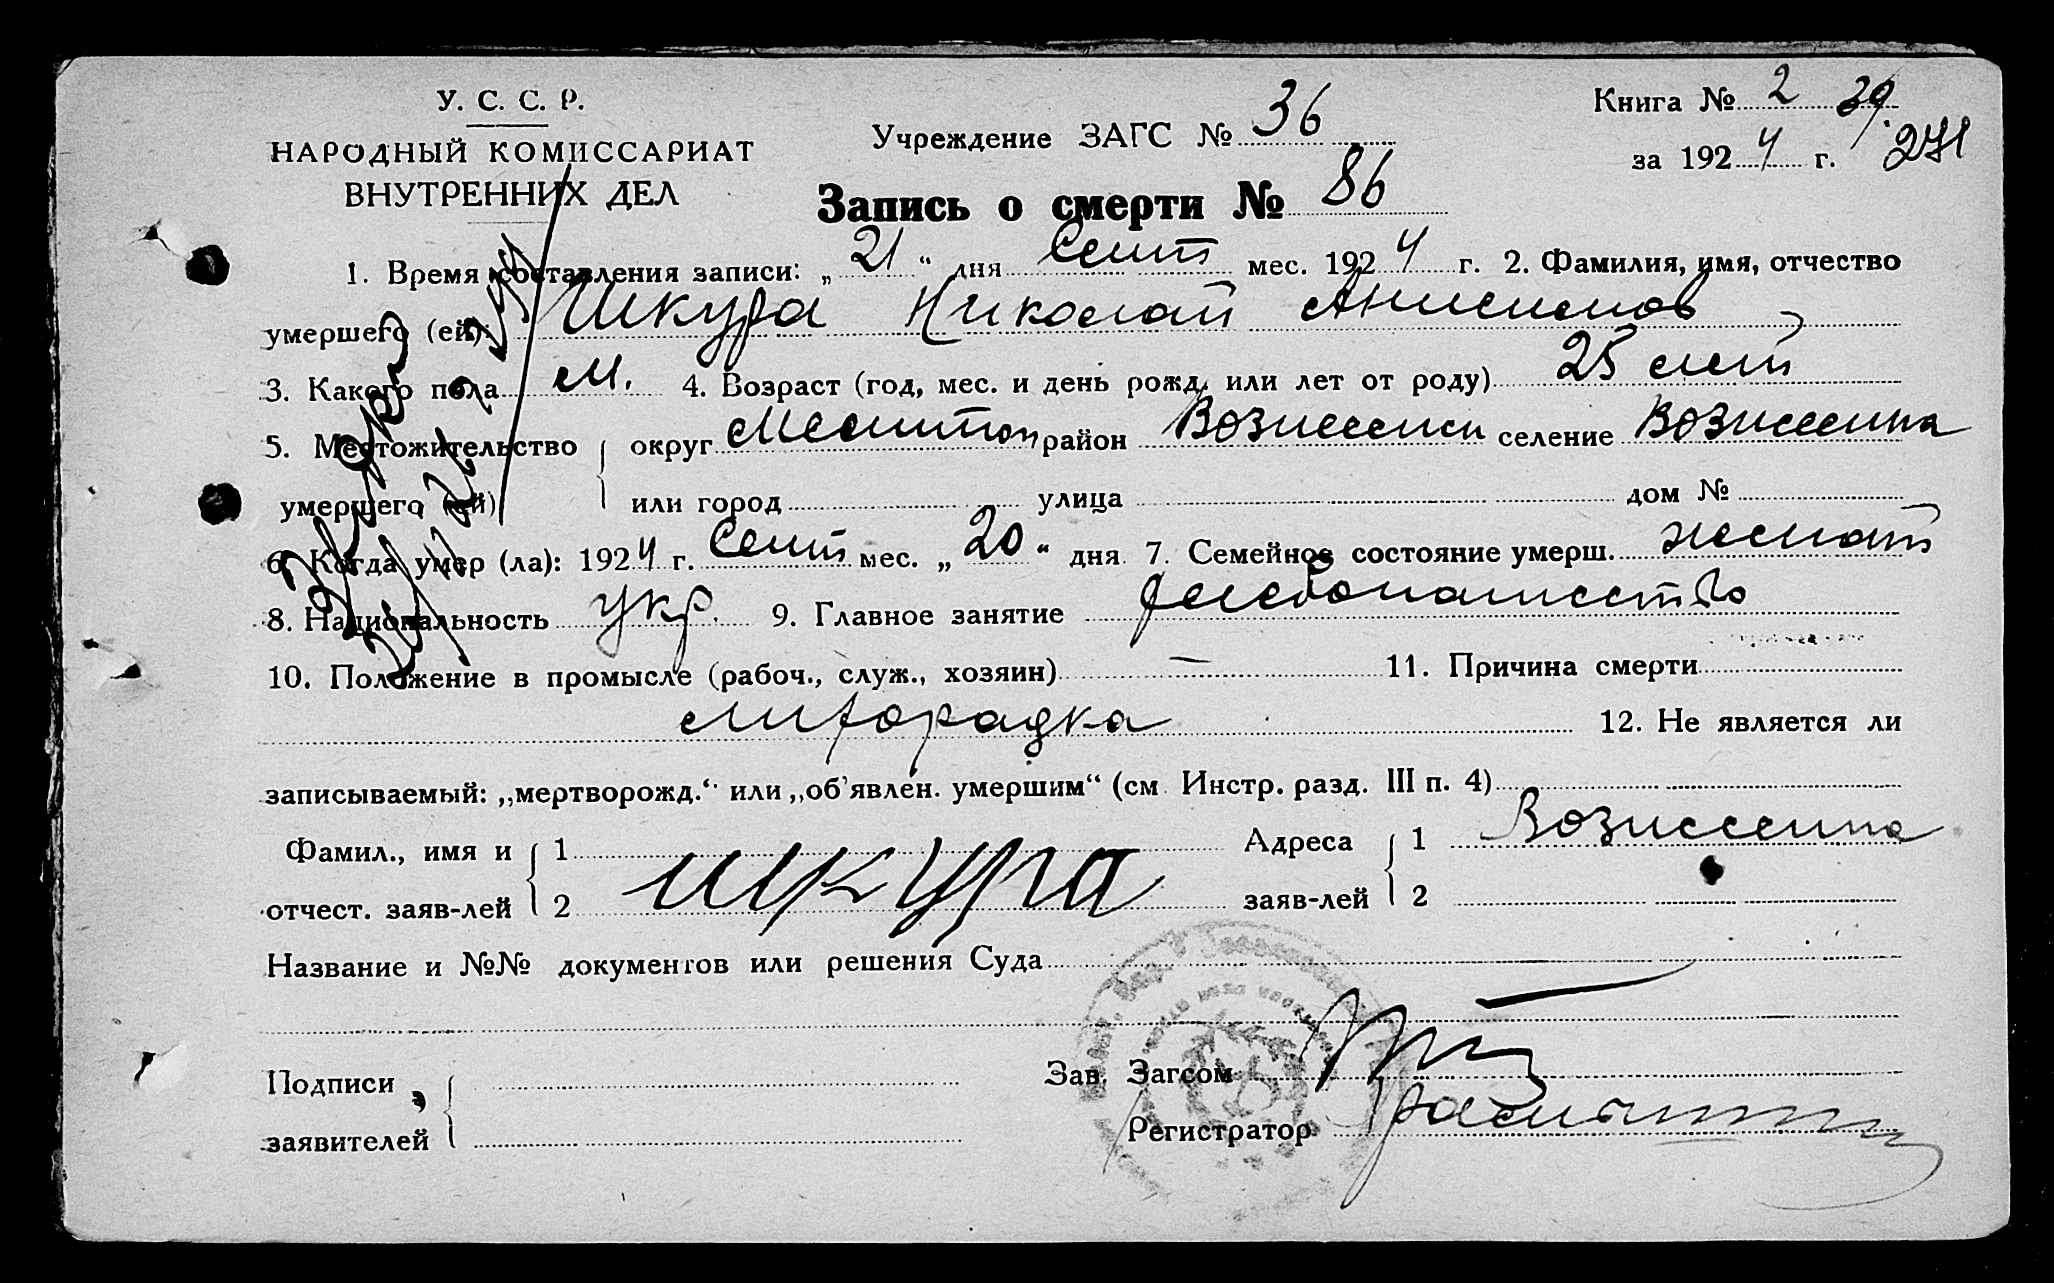 У. С. С. Р.
НАРОДНЫЙ КОМИССАРИАТ
ВНУТРЕННИХ ДЕЛ
Учреждение ЗАГС № 36
Книга № 2 39
за 1924 г. 271
Запись о смерти № 86
1. Время составления записи: „21“ дня Сент мес. 1924 г. 2. Фамилия, имя, отчество
умершего (ей): Шкура Николай Анисимов
3. Какого пола м. 4. Возраст (год, мес. и день рожд. или лет от роду) 25 лет
5. Местожительство округ Мелитоп район Вознесенск селение Вознесенка
умершего (ей) или город улица дом №
6. Когда умер (ла): 1924 г. Сент мес. „20“ дня 7. Семейное состояние умерш. женат
8. Национальность укр. 9. Главное занятие хлебопашество
10. Положение в промысле (рабоч., служ., хозяин) — 11. Причина смерти
лихорадка 12. Не является ли
записываемый: „мертворожд.“ или „об'явлен. умершим“ (см. Инстр. разд. III п. 4)
Фамил., имя и 1 Адреса 1 Вознесенка
отчест. заяв-лей 2 шкура заяв-лей 2
Название и №№ документов или решения Суда
Подписи Зав. Загсом
заявителей Регистратор